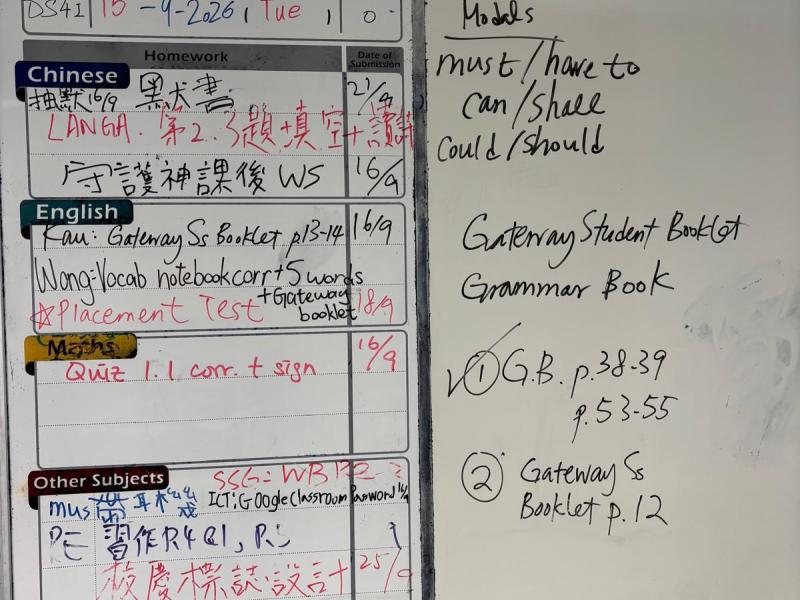 DS4I 15-9-2026, Tue
Homework Date of Submission
Chinese
抽默16/9 默书 21/9
LANGA. 第2.3題填空+讀
守護神課後 WS 16/9
English
Kau: Gateway Ss Booklet p.13-14 16/9
Wong: Vocab notebook corr + 5 words
+ Gateway booklet
☆Placement Test 18/9
Maths
Quiz 1.1 corr. + sign 16/9
Other Subjects
SSG: WB P2-
mus 帶 ICT: Google Classroom Password
PE 習作P.4 Q1,
校慶標誌設計 25/9
Modals
must/have to
can/shall
could/should
Gateway Student Booklet
Grammar Book
① G.B. p.38-39
p.53-55
② Gateway Ss
Booklet p.12